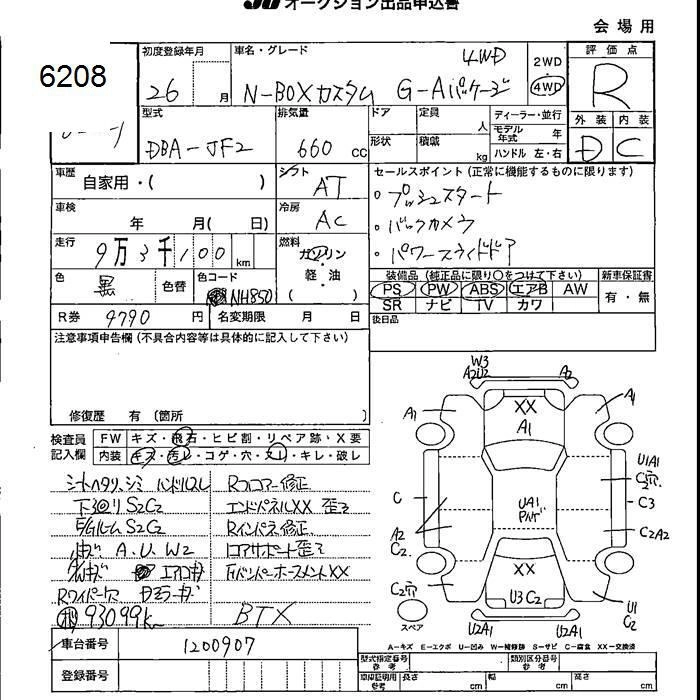 JU オークション出品申込書
会場用
6208
初度登録年月
26 月
車名・グレード
4WD
N-BOXカスタム G-Aパッケージ
2WD
4WD
評価点
R
外装 内装
D C
型式
DBA-JF2
排気量
660 cc
ドア
形状
定員
人
積載
kg
ディーラー・並行
モデル年式 年
ハンドル 左・右
車歴
自家用・( )
シフト
AT
車検
年 月( 日)
冷房
AC
走行
9万3千100 km
燃料
ガソリン
軽・油
( )
色
黒
色替
色コード
NH850
R券 9790 円
名変期限 月 日
セールスポイント (正常に機能するものに限ります)
・プッシュスタート
・バックカメラ
・パワースライドドア
装備品 (純正品に限り○をつけて下さい)
PS PW ABS エアB AW
SR ナビ TV カワ
新車保証書
有・無
後日品
注意事項申告欄 (不具合内容等は具体的に記入して下さい)
修復歴 有 (箇所 )
検査員記入欄
FW キズ・飛石・ヒビ割・リペア跡・X要
内装 キズ・汚レ・コゲ・穴・スレ・キレ・破レ
シートヘタリ、シミ ハンドルスレ
下廻りS2C2
E/GルームS2C2
A.U.W2
Rワイパー
93099k
Rフロアー修正
エンドパネルXX 歪ミ
Rインパネ修正
コアサポート歪ミ
FバンパーホースメントXX
BTX
W3
A2U2
A2
XX
A1
A1
A1
U1A1
C2穴
C3
C2A2
C
A2
C2
UA1
XX
U3C2
C2穴
U1
C1
U2A1
U2A1
スペア
A-キズ E-エクボ U-凹み W-補修跡 S-サビ C-腐食 XX-交換済
車台番号 1200907
登録番号
型式指定番号
参考
類別区分番号
参考
車庫証明用
参考
長さ cm
幅 cm
高さ cm